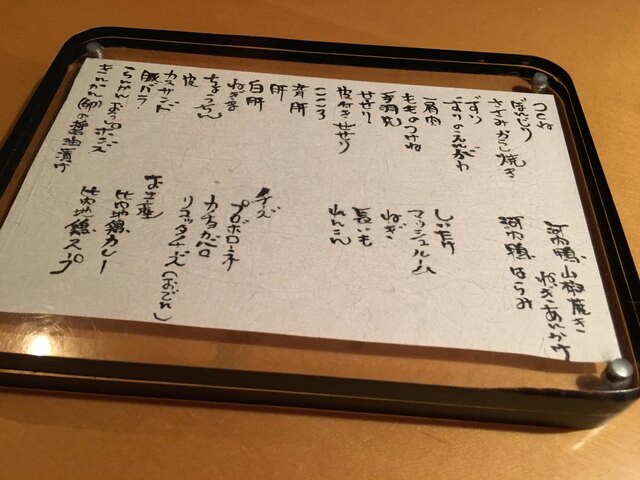 つくね
ぼんじり
ささみからし焼き
ずり
ずりのえんがわ
肩肉
もものつけね
せせり
皮付きせせり
こころ
背肝
肝
白肝
ねぎま
ちょうちん
皮
カマサンド
豚バラ
きんかん(卵の醤油漬け)
河内鴨山椒焼き
ねぎあんかけ
河内鴨はらみ
しいたけ
マッシュルーム
ねぎ
長いも
れんこん
チーズ
プロボローネ
カチョカバロ
リコッタチーズ(おでん)
お土産
比内地鶏カレー
比内地鶏スープ